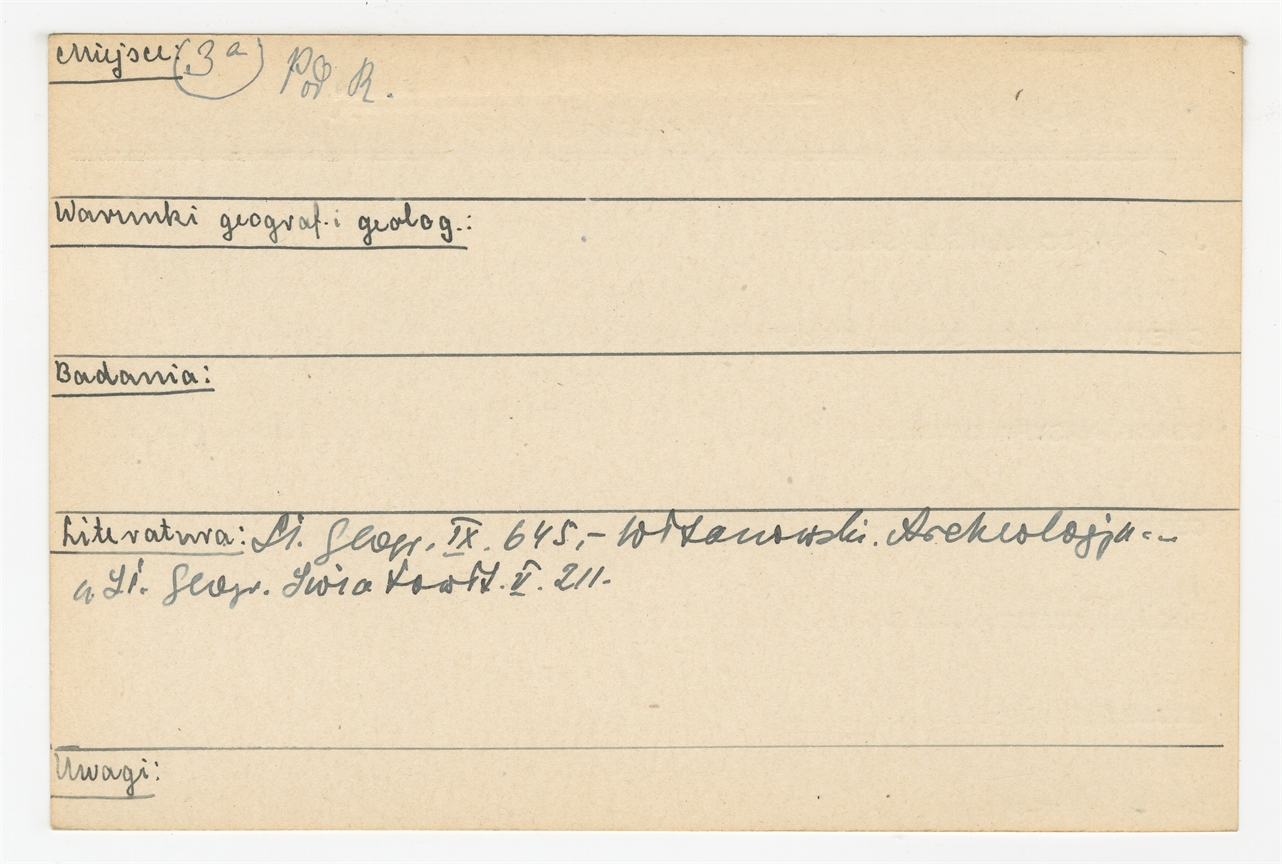 Miejsce: (3a) Pod R.
Warunki geograf. i geolog.:
Badania:
Literatura: Sł. Geogr. IX. 645,- Witanowski. Archeologja...
w Sł. Geogr. Świa towit. V. 211.
Uwagi: